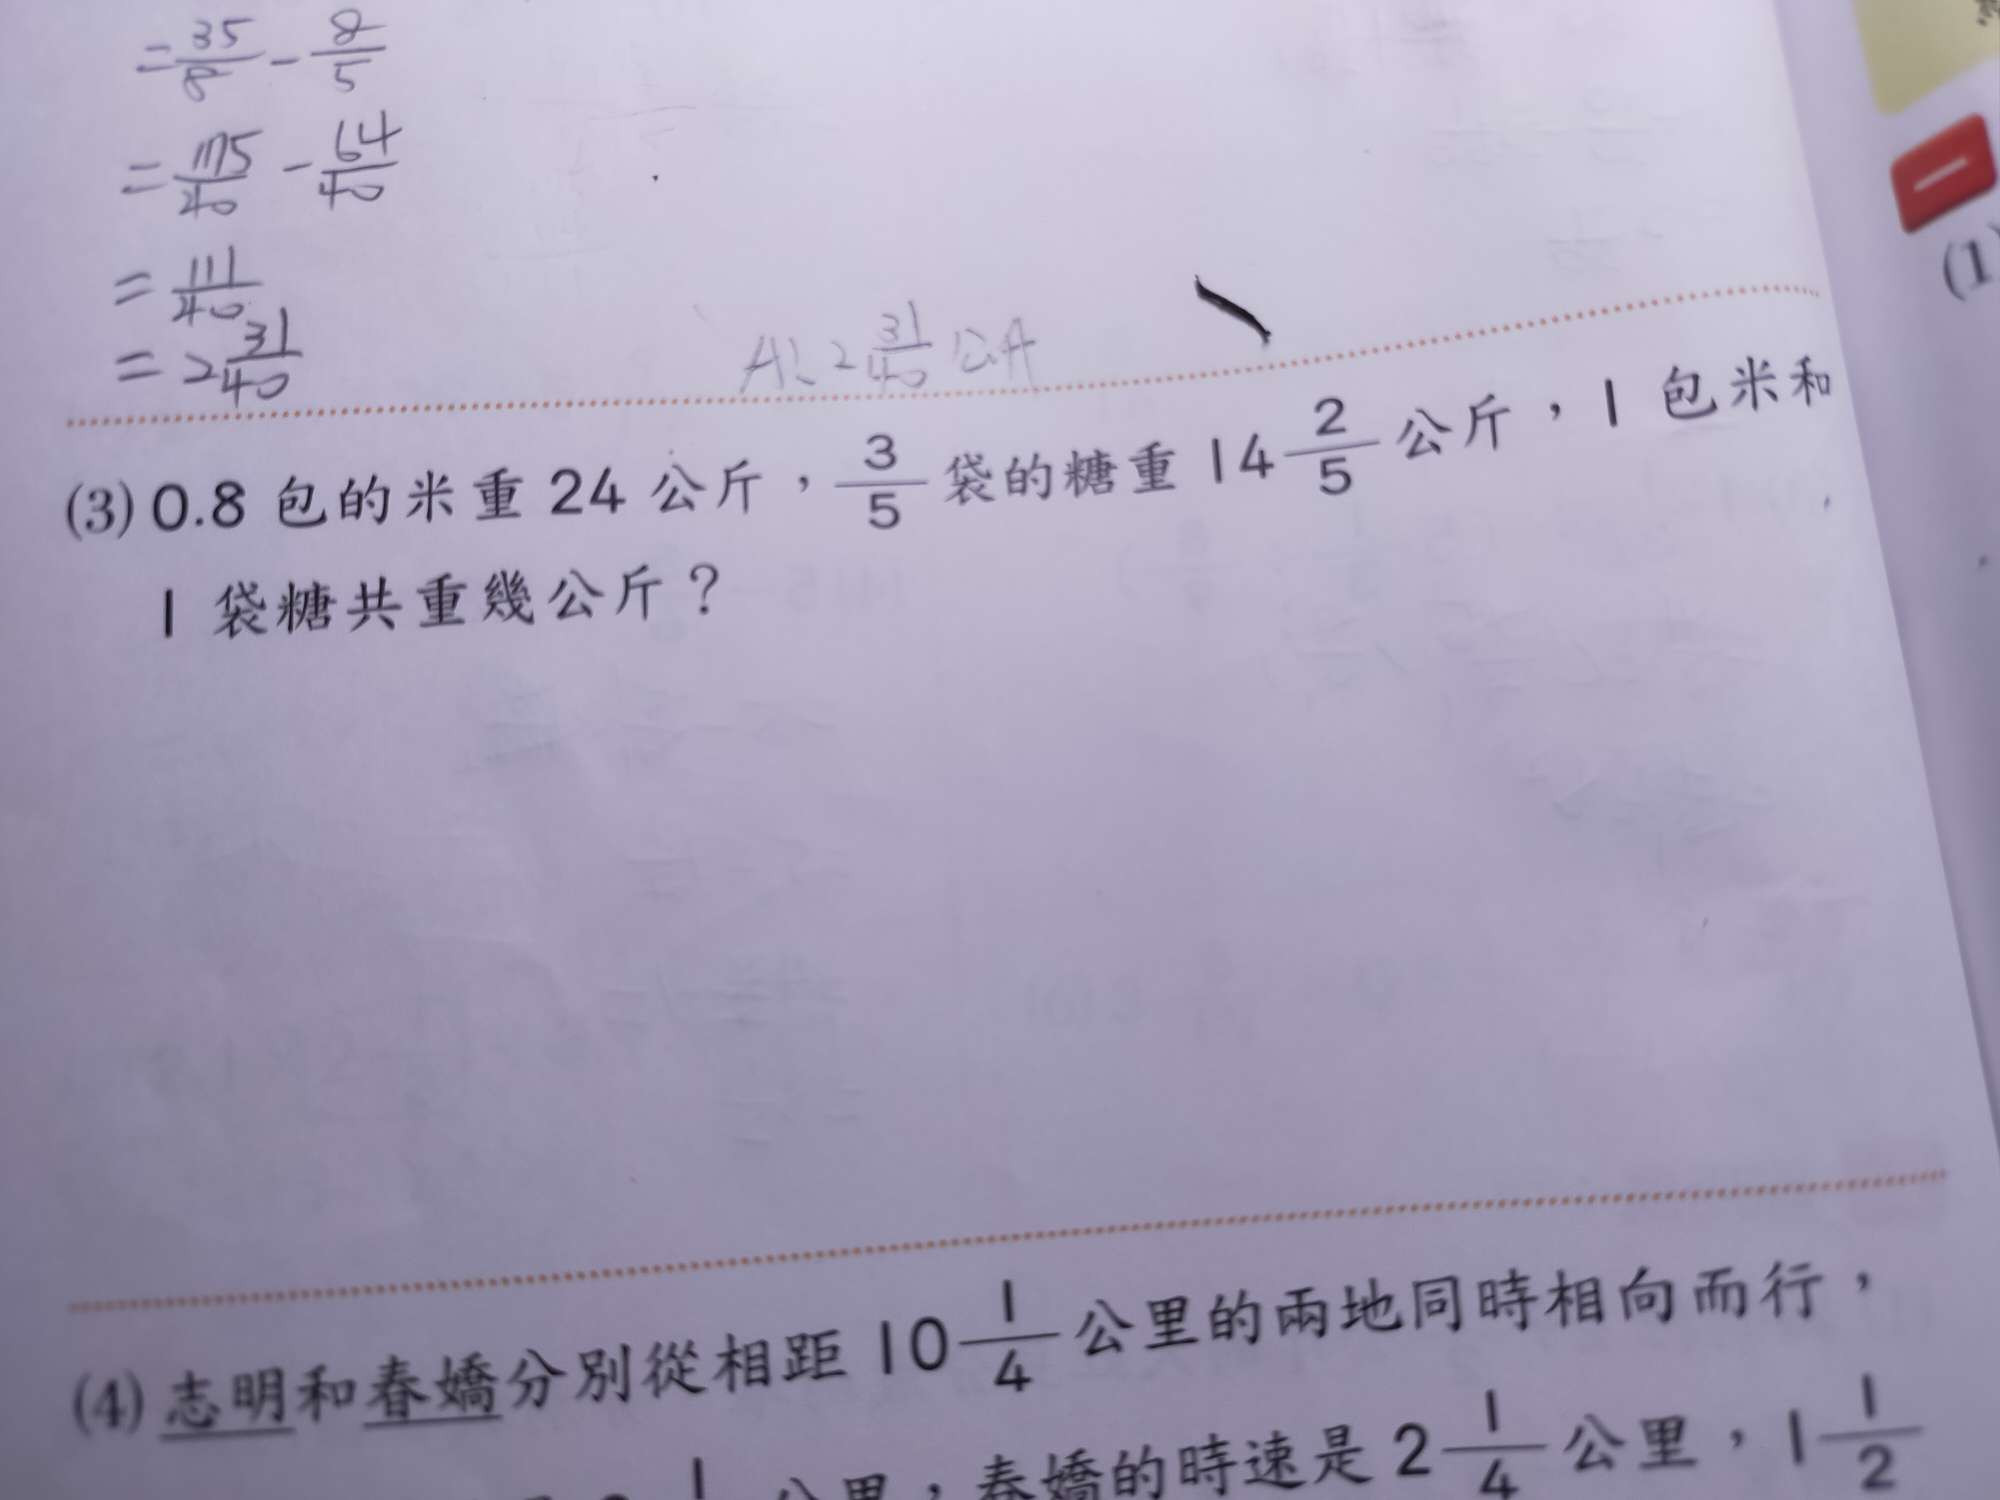 = 35/8 - 8/5
= 175/40 - 64/40
= 111/40
= 2 31/40
A: 2 31/40 公升
(3) 0.8 包的米重 24 公斤，3/5 袋的糖重 14 2/5 公斤，1 包米和
1 袋糖共重幾公斤？
(4) 志明和春嬌分別從相距 10 1/4 公里的兩地同時相向而行，
公里，春嬌的時速是 2 1/4 公里，1 1/2
一
(1)